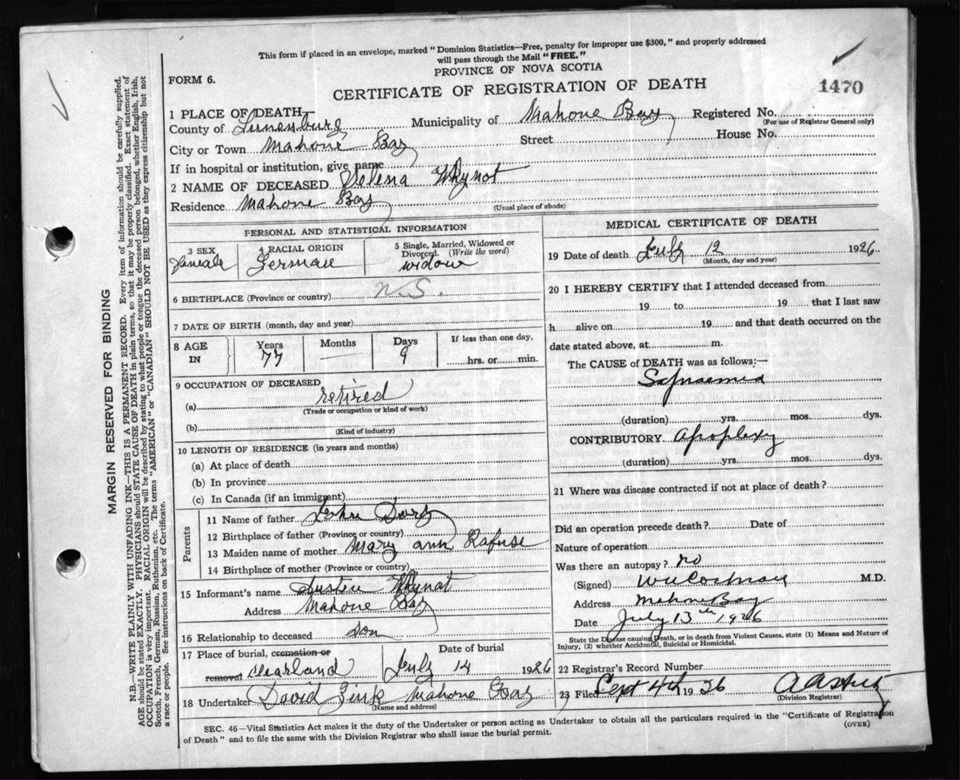 This form if placed in an envelope, marked "Dominion Statistics—Free, penalty for improper use $300," and properly addressed
will pass through the Mail "FREE."
PROVINCE OF NOVA SCOTIA
FORM 6.
CERTIFICATE OF REGISTRATION OF DEATH
1470
1 PLACE OF DEATH
County of Lunenburg Municipality of Mahone Bay Registered No.
(For use of Registrar General only)
City or Town Mahone Bay Street House No.
If in hospital or institution, give name
2 NAME OF DECEASED Selena Whynot
Residence Mahone Bay
(Usual place of abode)
PERSONAL AND STATISTICAL INFORMATION
3 SEX 4 RACIAL ORIGIN 5 Single, Married, Widowed or
Divorced. (Write the word)
Female German widow
6 BIRTHPLACE (Province or country) N.S.
7 DATE OF BIRTH (month, day and year)
8 AGE IN Years Months Days If less than one day,
77 — 9 hrs. or min.
9 OCCUPATION OF DECEASED
(a) retired
(Trade or occupation or kind of work)
(b)
(Kind of industry)
10 LENGTH OF RESIDENCE (in years and months)
(a) At place of death
(b) In province
(c) In Canada (if an immigrant)
Parents
11 Name of father John
12 Birthplace of father (Province or country)
13 Maiden name of mother Mary Ann Rafuse
14 Birthplace of mother (Province or country)
15 Informant's name Whynot
Address Mahone Bay
16 Relationship to deceased Son
17 Place of burial, cremation or Date of burial
removal Clearland July 14 1926
18 Undertaker David Zink Mahone Bay
(Name and address)
MEDICAL CERTIFICATE OF DEATH
19 Date of death July 12 1926
(Month, day and year)
20 I HEREBY CERTIFY that I attended deceased from
19 to 19 that I last saw
h alive on 19 and that death occurred on the
date stated above, at m.
The CAUSE of DEATH was as follows:—
Sapraemia
(duration) yrs. mos. dys.
CONTRIBUTORY Apoplexy
(duration) yrs. mos. dys.
21 Where was disease contracted if not at place of death?
Did an operation precede death? Date of
Nature of operation
Was there an autopsy? no
(Signed) M.D.
Address Mahone Bay
Date July 13th 1926
State the Disease causing Death, or in death from Violent Causes, state (1) Means and Nature of
Injury, (2) whether Accidental, Suicidal or Homicidal.
22 Registrar's Record Number
23 Filed Sept 4th 1926
(Division Registrar)
SEC. 46—Vital Statistics Act makes it the duty of the Undertaker or person acting as Undertaker to obtain all the particulars required in the "Certificate of Registration
of Death" and to file the same with the Division Registrar who shall issue the burial permit. (OVER)
MARGIN RESERVED FOR BINDING
N.B.—WRITE PLAINLY WITH UNFADING INK—THIS IS A PERMANENT RECORD. Every item of information should be carefully supplied.
AGE should be stated EXACTLY. PHYSICIANS should STATE CAUSE OF DEATH in plain terms, so that it may be properly classified. Exact statement of
OCCUPATION is very important. RACIAL ORIGIN will be described by stating to what people or tongue the deceased person belonged, whether English, Irish,
Scotch, French, German, Russian, Ruthenian, etc. The terms "AMERICAN" or "CANADIAN" SHOULD NOT BE USED as they express citizenship but not
a race or people. See instructions on back of Certificate.